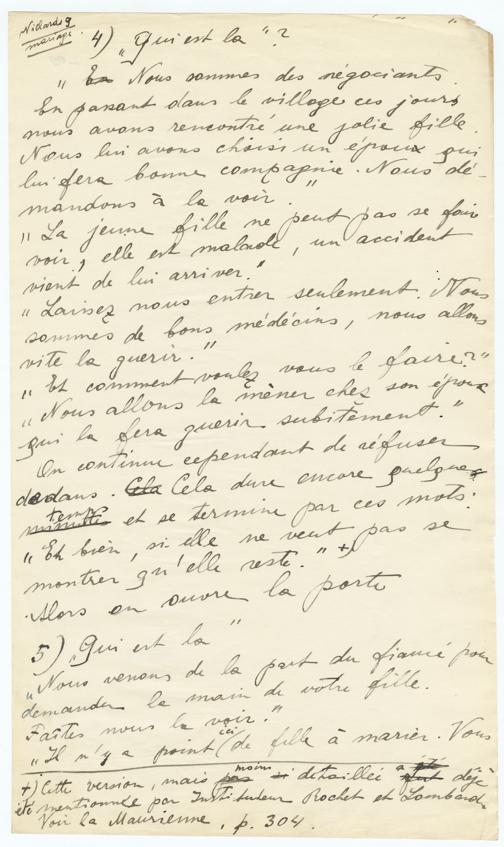 Nillards 9
mariage
4) „Qui est la"?
„ En Nous sommes des négociants.
En passant dans le village ces jours
nous avons rencontré une jolie fille.
Nous lui avons choisi un époux qui
lui fera bonne compagnie. Nous dé-
mandons à la voir."
„La jeune fille ne peut pas se fair
voir, elle est malade, un accident
vient de lui arriver."
„Laissez nous entrer seulement. Nous
sommes de bons médécins, nous allons
vite la guerir."
„Et comment voulez vous le faire?"
„Nous allons la mèner chez son époux
qui la fera guerir subitèment."
On continue cependant de réfuser
dedans. Cela Cela dure encore quelque
temps
minutes et se termine par ces mots:
„Eh bien, si elle ne veut pas se
montrer qu'elle reste." +)
Alors on ouvre la porte
5) „Qui est la"
„Nous venons de la part du fiancé pour
demander la main de votre fille.
Faites nous la voir."
„Il n'y a point (ici de fille à marier. Vous
+) Cette version, mais pas moins si detaillée a été déjà
été mentionnée par Instituteur Rochet et Lombard.
Voir la Maurienne, p. 304.